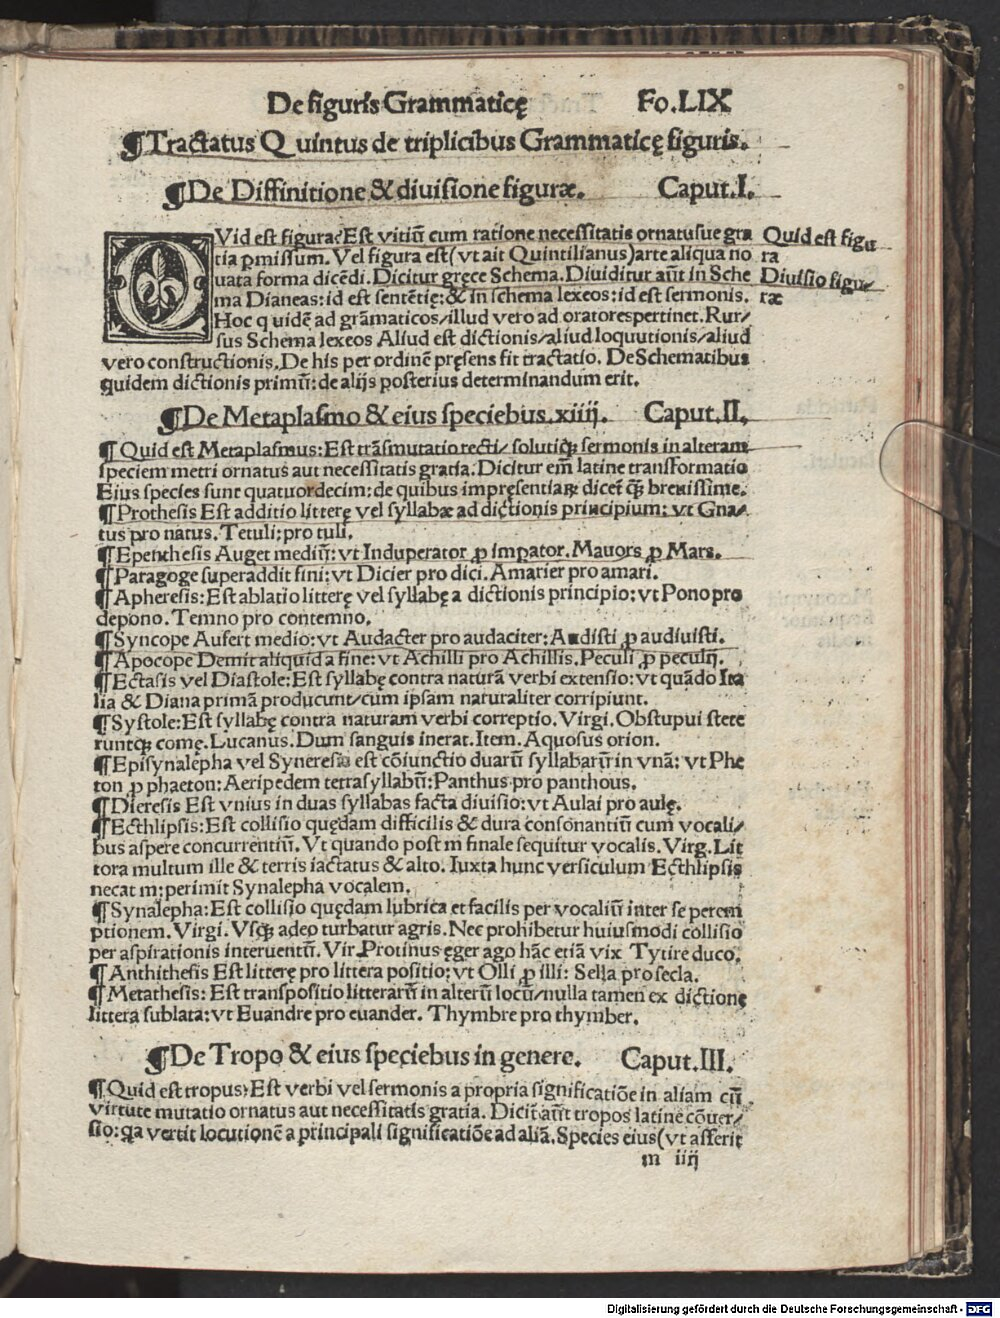 De figuris Grammaticę Fo.LIX
¶Tractatus Quintus de triplicibus Grammaticę figuris.
¶De Diffinitione & diuisione figuræ. Caput.I.
QVid est figura? Est vitiū cum ratione necessitatis ornatusue gra
tia ꝑmissum. Vel figura est (vt ait Quintilianus) arte aliqua no
uata forma dicēdi. Dicitur gręce Schema. Diuiditur aūt in Sche
ma Dianeas: id est sentētię: & in schema lexeos: id est sermonis.
Hoc quidē ad grāmaticos/illud vero ad oratorespertinet. Rur/
sus Schema lexeos Aliud est dictionis/aliud loquutionis/aliud
vero constructionis. De his per ordinē pręsens fit tractatio. De Schematibus
quidem dictionis primū: de alijs posterius determinandum erit.
Quid est figu
ra
Diuisio figu/
ræ
¶De Metaplasmo & eius speciebus.xiiij. Caput.II.
¶Quid est Metaplasmus: Est trāsmutatio recti/ solutiqꝫ sermonis in alteram
speciem metri ornatus aut necessitatis gratia. Dicitur em̄ latine transformatio
Eius species sunt quatuordecim: de quibus impręsentiaꝝ dicet̄ qꝫ breuissime.
¶Prothesis Est additio litterę vel syllabæ ad dictionis principium: vt Gna/
tus pro natus. Tetuli: pro tuli.
¶Epenthesis Auget mediū: vt Induperator ꝓ imꝑator. Mauors ꝓ Mars.
¶Paragoge superaddit fini: vt Dicier pro dici. Amarier pro amari.
¶Apheresis: Est ablatio litterę vel syllabę a dictionis principio: vt Pono pro
depono. Temno pro contemno.
¶Syncope Aufert medio: vt Audacter pro audaciter: Audisti ꝓ audiuisti.
¶Apocope Demit aliquid a fine: vt Achilli pro Achillis. Peculi ꝓ peculij.
¶Ectasis vel Diastole: Est syllabę contra naturā verbi extensio: vt quādo Ita
lia & Diana primā producunt/cum ipsam naturaliter corripiunt.
¶Systole: Est syllabę contra naturam verbi correptio. Virgi. Obstupui stete
runtqꝫ comę. Lucanus. Dum sanguis inerat. Item. Aquosus orion.
¶Episynalepha vel Syneresis est cōiunctio duarū syllabarū in vnā: vt Phe
ton ꝓ phaeton: Aeripedem tetrasyllabū: Panthus pro panthous.
¶Dieresis Est vnius in duas syllabas facta diuisio: vt Aulai pro aulę.
¶Ecthlipsis: Est collisio quędam difficilis & dura consonantiū cum vocali/
bus aspere concurrentiū. Vt quando post m finale sequitur vocalis. Virg. Lit
tora multum ille & terris iactatus & alto. Iuxta hunc versiculum Ecthlipsis
necat m: perimit Synalepha vocalem.
¶Synalepha: Est collisio quędam lubrica et facilis per vocaliū inter se perem
ptionem. Virgi. Vsqꝫ adeo turbatur agris. Nec prohibetur huiusmodi collisio
per aspirationis interuentū. Vir. Protinus ęger ago hāc etiā vix Tytire duco.
¶Anthithesis Est litterę pro littera positio: vt Olli ꝓ illi: Sella pro secla.
¶Metathesis: Est transpositio litterarū in alterū locū/nulla tamen ex dictione
littera sublata: vt Euandre pro euander. Thymbre pro thymber.
¶De Tropo & eius speciebus in genere. Caput.III.
¶Quid est tropus? Est verbi vel sermonis a propria significatiōe in aliam cū
virtute mutatio ornatus aut necessitatis gratia. Dicit̄ aūt tropos latine cōuer/
sio: qa vertit locutionē a principali significatiōe ad aliā. Species eius (vt asserit
m iiij
Digitalisierung gefördert durch die Deutsche Forschungsgemeinschaft - DFG